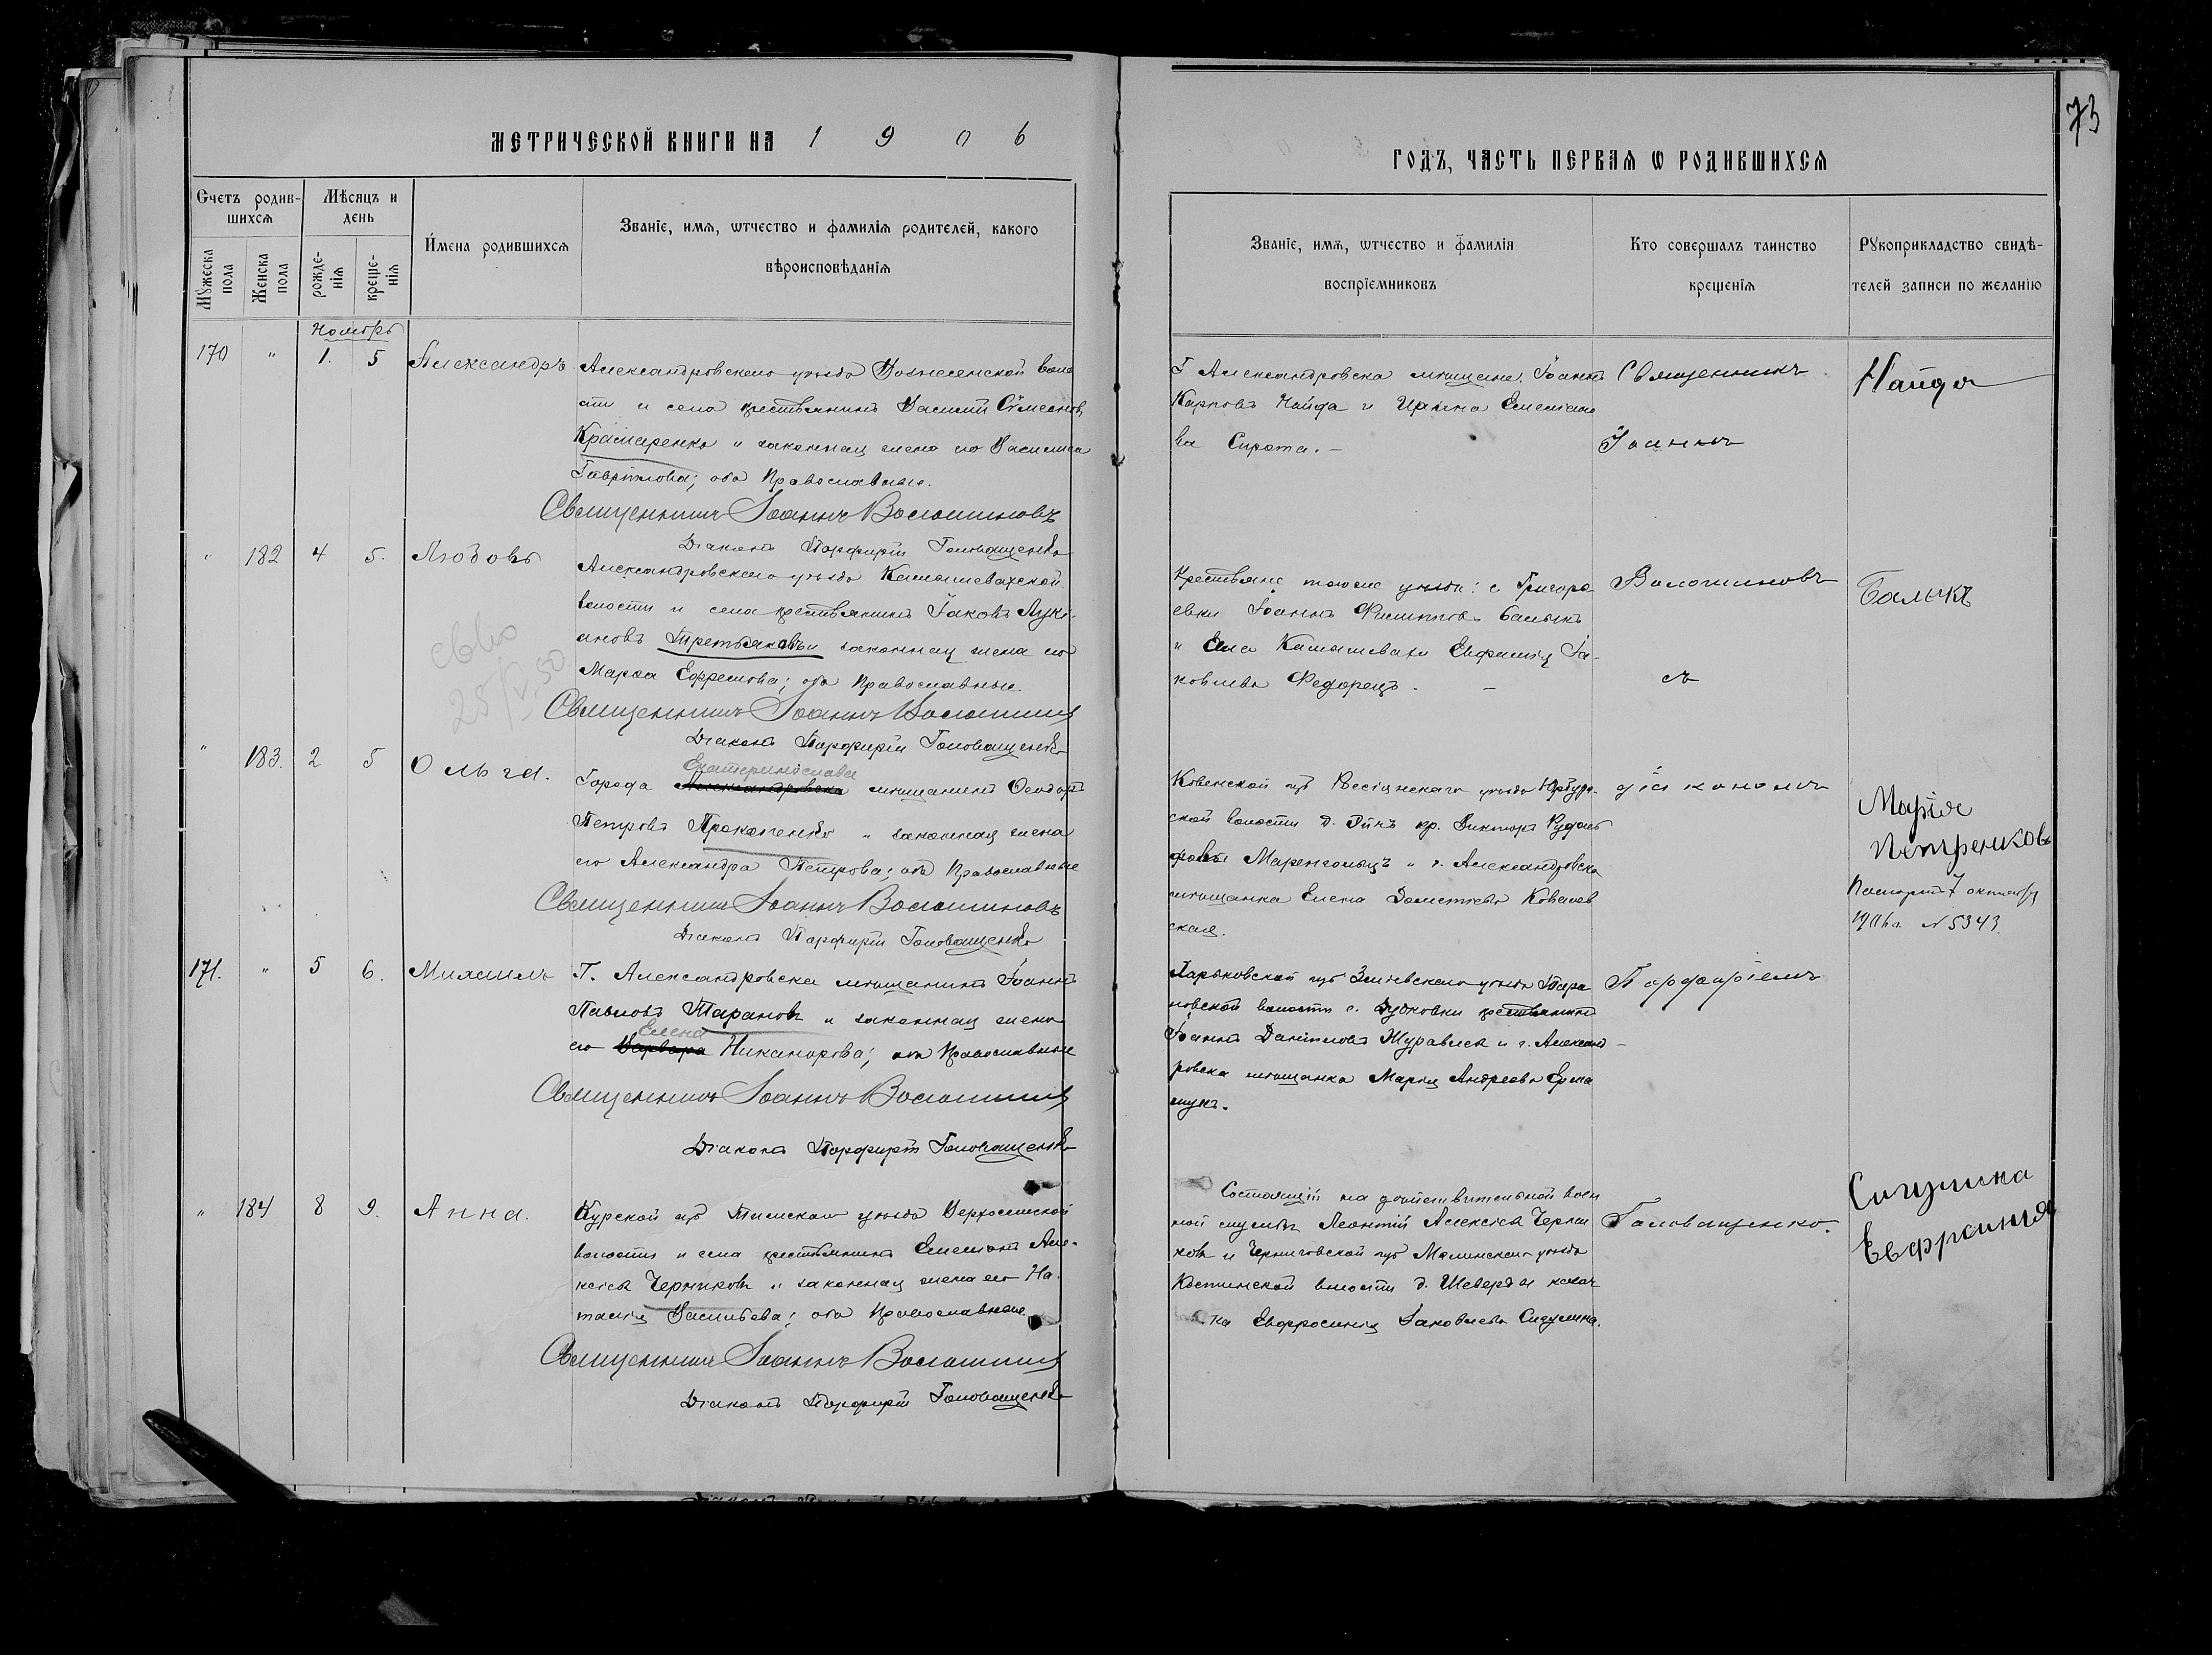 МЕТРИЧЕСКОЙ КНИГИ НА 1906
ГОДЪ, ЧАСТЬ ПЕРВАѦ Ѡ РОДИВШИХСѦ
73
Счетъ родив-
шихсѧ
Мужеска пола
Женска пола
Мѣсѧцъ и
день
рожде-
нїѧ
креще-
нїѧ
Имена родившихсѧ
Званїе, имѧ, ѡтчество и фамилїѧ родителей, какого
вѣроисповѣданїѧ
Званїе, имѧ, ѡтчество и фамилїѧ
воспрїемниковъ
Кто совершалъ таинство
крещенїѧ
Рукоприкладство свидѣ-
телей записи по желанїю
170 " 1. 5 Александръ
Александровскаго уѣзда Вознесенской воло
сти и села крестьянинъ Василій Сѵмеоновъ
Крамаренко и законная жена его Василиса
Гавріилова; оба Православные.
Священникъ Іоаннъ Волошиновъ
Діаконъ Порфирій Головащенко
Г Александровска мѣщане: Іоаннъ
Карповъ Найда и Ирина Емелiано
ва Сирота. –
Священникъ
Іоаннъ
Найда
" 182 4 5. Любовь
Александровскаго уѣзда Камышевахской
волости и села крестьянинъ Іаковъ Лукі-
ановъ Третьяковъ и законная жена его
Марѳа Ефремова; оба Православные
Священникъ Іоаннъ Волошинов
Діаконъ Порфирій Головащенко
Крестьяне того же уѣзда: с Григорь
евки Іоаннъ Филипповъ Балыкъ
и села Камышеваха Евфимія Іа-
ковлева Федорецъ. –
Волошиновъ
съ
Балыкъ
25/V.50
" 183. 2 5 Ольга.
Екатеринослава
Города Александровска мѣщанинъ Ѳеодоръ
Петровъ Прокопенко и законная жена
его Александра Петрова; оба Православные
Священникъ Іоаннъ Волошиновъ
Діаконъ Порфирій Головащенко
Ковенской губ Россіенскаго уѣзда Юрбург-
ской волости д. кр. Викторъ Рудоль
фовъ Маренгольцъ и г. Александровска
мѣщанка Елена Дометіева Ковалев
ская.
діакономъ
Марія
Петренкова
Паспортъ 7 октября
1906 г. № 5343.
171. " 5 6. Михаилъ
Г. Александровска мѣщанинъ Іоаннъ
Павловъ Тарановъ и законная жена
Елена
его Варвара Никанорова; оба Православные
Священникъ Іоаннъ Волошинов
Діаконъ Порфирій Головащенко
Харьковской губ Зміевскаго уѣзда Тара
новской волости с. Дудковки крестьянинъ
Іоаннъ Даніиловъ Журавлев и г. Александ-
ровска мѣщанка Марія Андреева Ерма
щукъ.
Порфиріемъ
" 184 8 9. Анна.
Курской губ Тимскаго уѣзда Верхосемской
волости и села крестьянинъ Емеліанъ Але-
ксіевъ Черниковъ и законная жена его На-
талія Васильева; оба Православные.
Священникъ Іоаннъ Волошинов
Діаконъ Порфирій Головащенко
Состоящій на дѣйствительной воен
ной службѣ Леонтій Алексіевъ Черни
ковъ и Черниговской губ Мглинскаго уѣзда
Костинской волости д. казач
ка Евфросинія Іаковлева Сигулина.
Головащенко.
Сигулина
Евфросинія